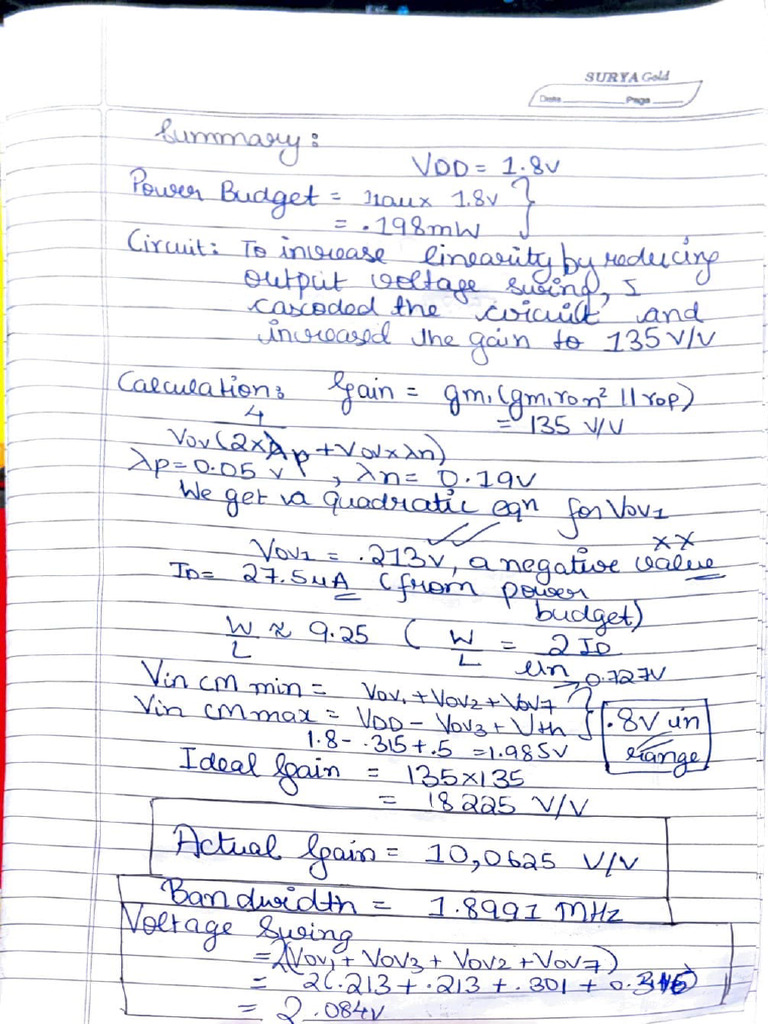 SURYA Gold
Date Page
Summary:
VDD = 1.8v
Power Budget = 110u x 1.8v
= .198mW
Circuit: To increase linearity by reducing
output voltage swing, I
cascoded the circuit and
increased the gain to 135 V/V
Calculation: Gain = gm1(gm1ron² || rop)
= 135 V/V
4
Vov(2xλp + Vovxλn)
λp = 0.05 v, λn = 0.19v
We get a quadratic eqn for Vov1
Vov1 = .213v, a negative value xx
ID = 27.5uA (from power
budget)
W/L ≈ 9.25 ( W/L = 2ID
un
0.727V
Vin CM min = Vov1 + Vov2 + Vov7
Vin CM max = VDD - Vov3 + Vth
.8v in
range
1.8 - .315 + .5 = 1.985v
Ideal Gain = 135x135
= 18225 V/V
Actual Gain = 10,0625 V/V
Bandwidth = 1.8991 MHz
Voltage Swing
= 2(Vov1 + Vov3 + Vov2 + Vov7)
= 2(.213 + .213 + .301 +
= 2.084v